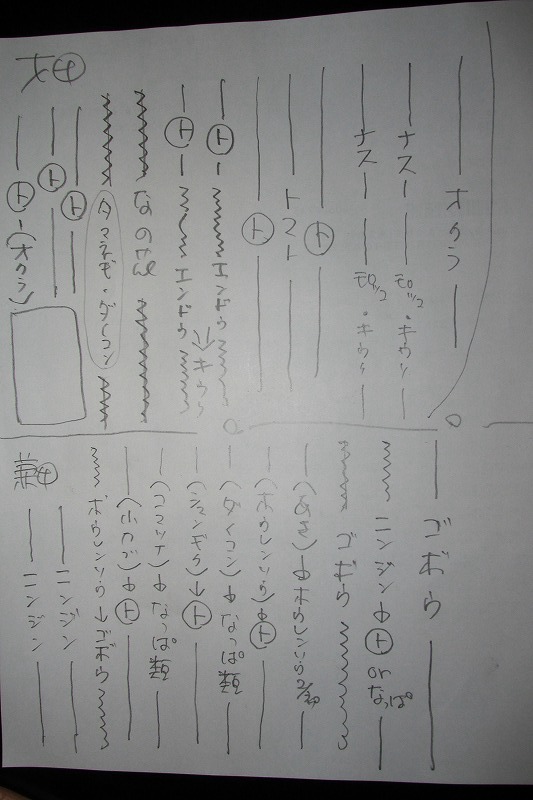 オクラ
ナス モロッコ・キウリ
ナス モロッコ・キウリ
ト
トマト
ト
ト エンドウ → キウリ
ト エンドウ
なの花
タマネギ・ダイコン
ト
ト
ト (オクラ)
④
ゴボウ
ニンジン → ト or なっぱ
ゴボウ
(あき) → ホウレンソウ 2/20
(ホウレンソウ) → ト
(ダイコン) → なっぱ類
(シュンギク) → ト
(コマツナ) → なっぱ類
(小カブ) → ト
ホウレンソウ → ゴボウ
ニンジン
ニンジン
④